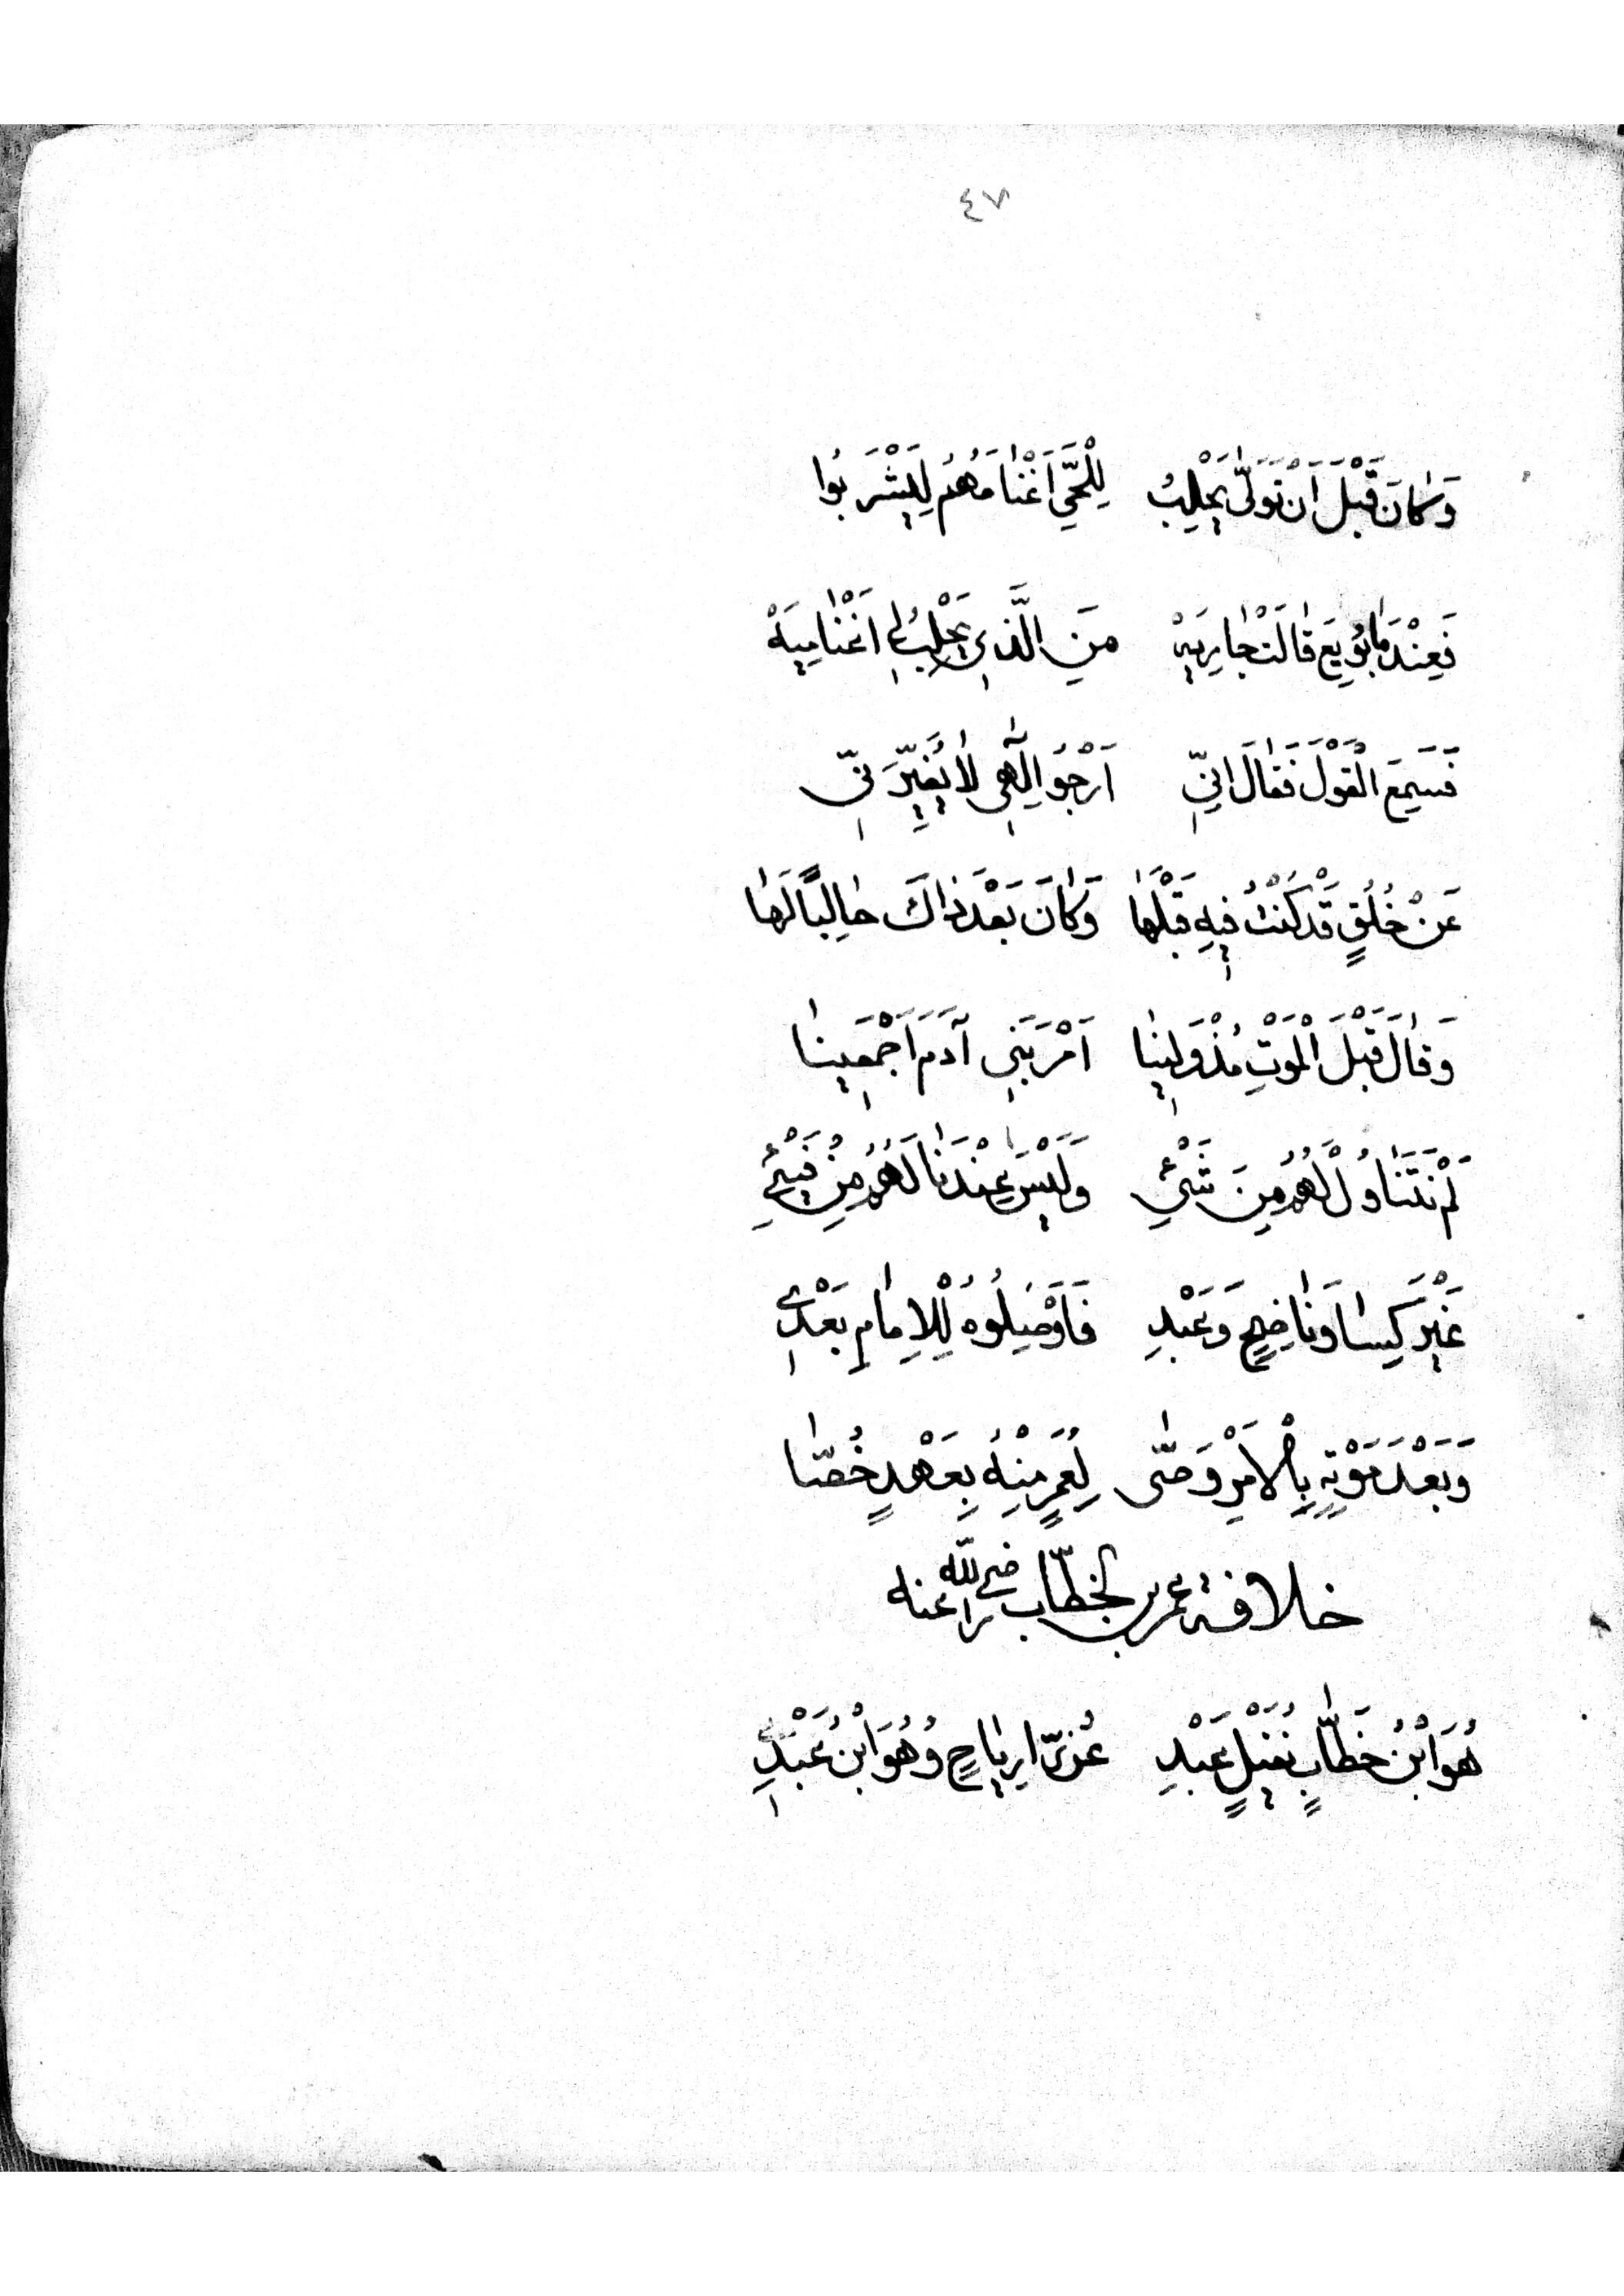 ٤٧
وَكَانَ قَبْلَ اَنْ تَوَلّٰى يَحْلِبُ لِلْحَيِّ اَغْنَامَهُمْ لِيَشْرَبُوا
فَعِنْدَمَا بُويِعَ قَالَتْ جَارِيَهْ مَنِ الَّذِي يَحْلِبُ لِي اَغْنَامِيَهْ
فَسَمِعَ الْقَوْلَ فَقَالَ اِنِّي اَرْجُو اِلٰهِي لَا يُغَيِّرَنِّي
عَنْ خُلُقٍ قَدْ كُنْتُ فِيهِ قَبْلَهَا وَكَانَ بَعْدَ ذَاكَ حَالِبًا لَهَا
وَقَالَ قَبْلَ الْمَوْتِ مُذْ وَلِينَا اَمْرَ بَنِي آدَمَ اَجْمَعِينَا
لَمْ نَتَنَاوُلْ لَهُمْ مِنْ شَيْئِ وَلَيْسَ عِنْدَنَا لَهُمْ مِنْ فَيْئِ
غَيْرَ كِسَا وَنَاضِحٍ وَعَبْدِ فَاَوْصِلُوهُ لِلْاِمَامِ بَعْدِي
وَبَعْدَ مَوْتِهِ بِالْاَمْرِ وَصّٰى لِعُمَرٍ مِنْهُ بِعَهْدٍ خُصَّا
خلافة عمر بن الخطّاب رضي الله عنه
هُوَ ابْنُ خَطَّابٍ نُفَيْلٍ عَبْدِ عُزّىً رِيَاحٍ وَهُوَ ابْنُ عَبْدِ